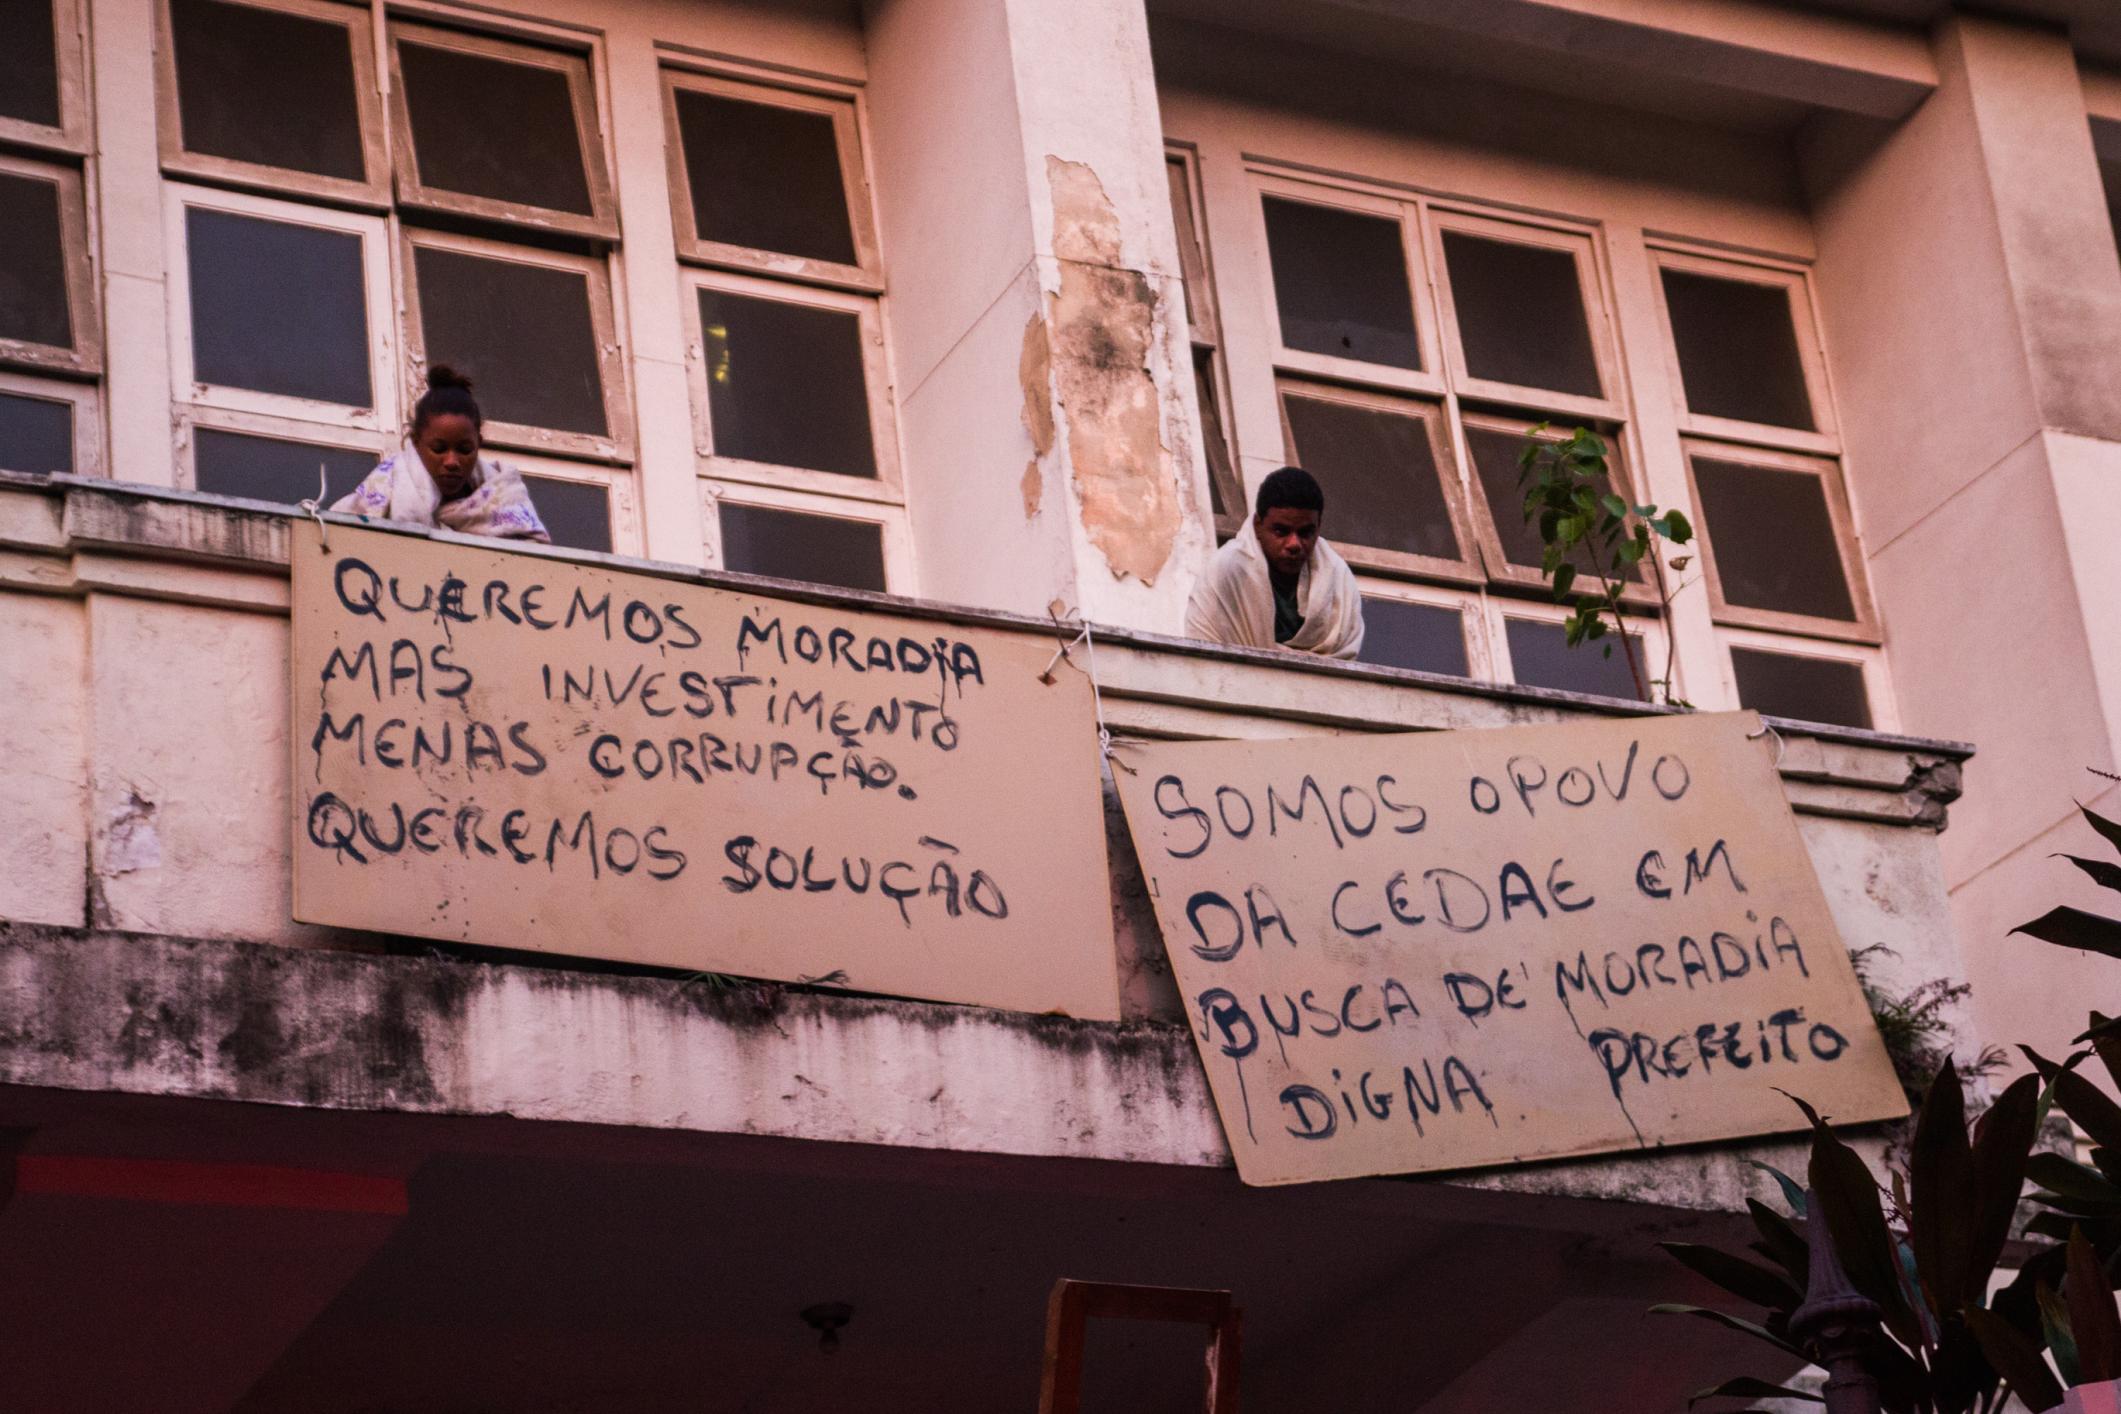 QUEREMOS MORADIA
MAS INVESTIMENTO
MENAS CORRUPÇÃO.
QUEREMOS SOLUÇÃO
SOMOS O POVO
DA CEDAE EM
BUSCA DE MORADIA
DIGNA PREFEITO